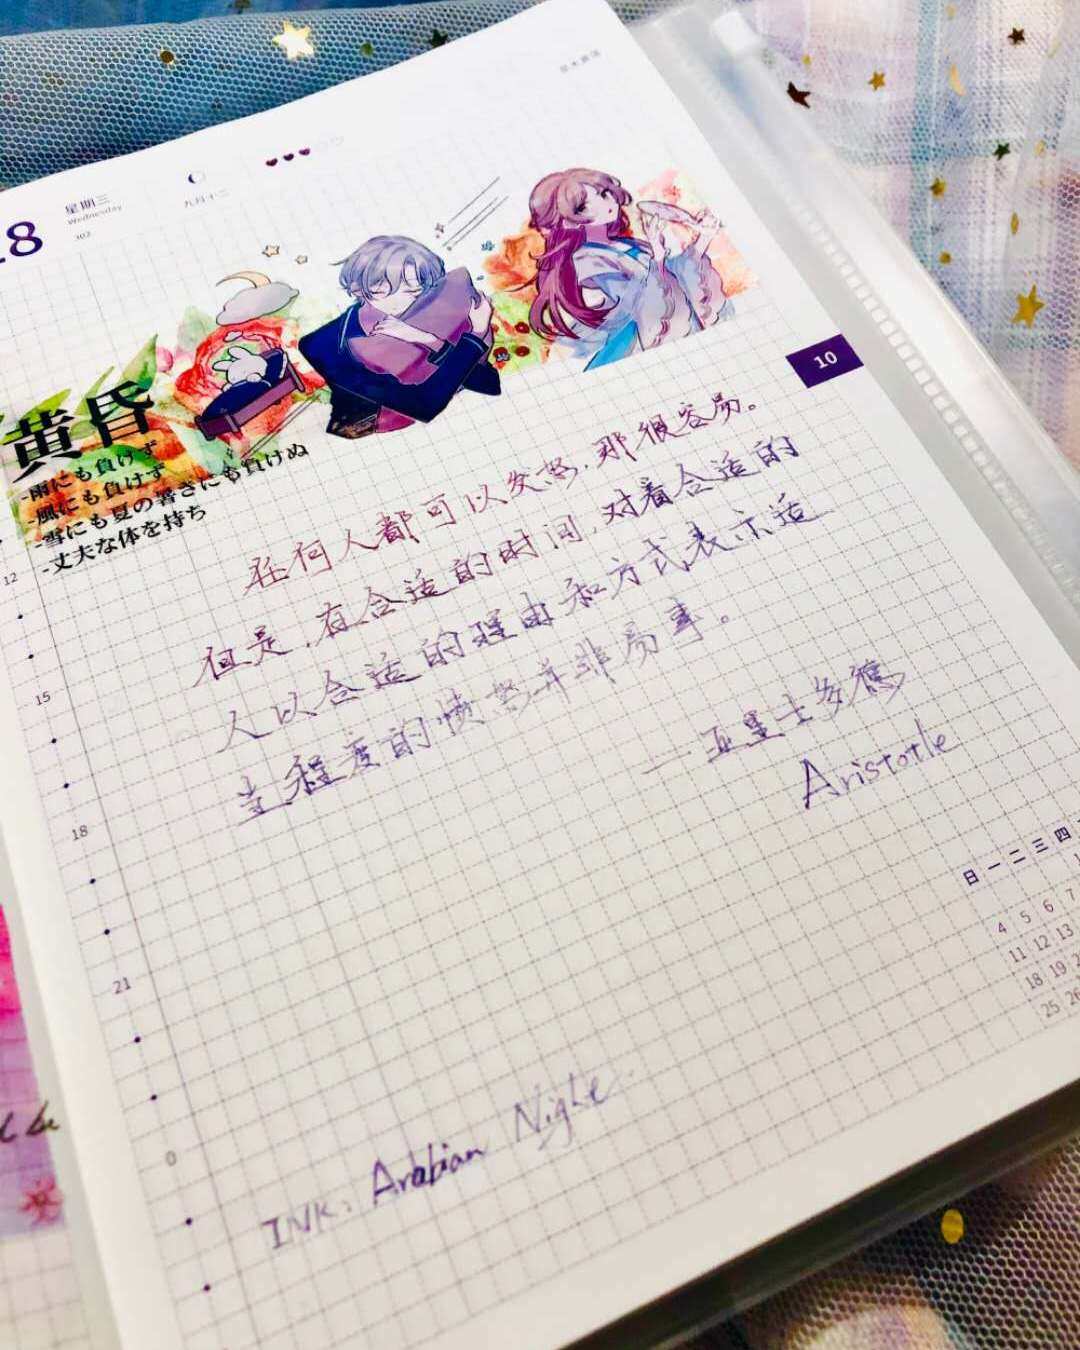 8
星期三
Wednesday
302
九月十二
10
黄昏
-雨にも負けず
-風にも負けず
-雪にも夏の暑さにも負けぬ
-丈夫な体を持ち
任何人都可以发怒，那很容易。
但是，在合适的时间，对着合适的
人以合适的理由和方式表示适
当程度的愤怒并非易事。
—亚里士多德
Aristotle
12
15
18
21
0
日 一 二 三 四
4 5 6 7
11 12 13
18 19
25
INK: Arabian Night